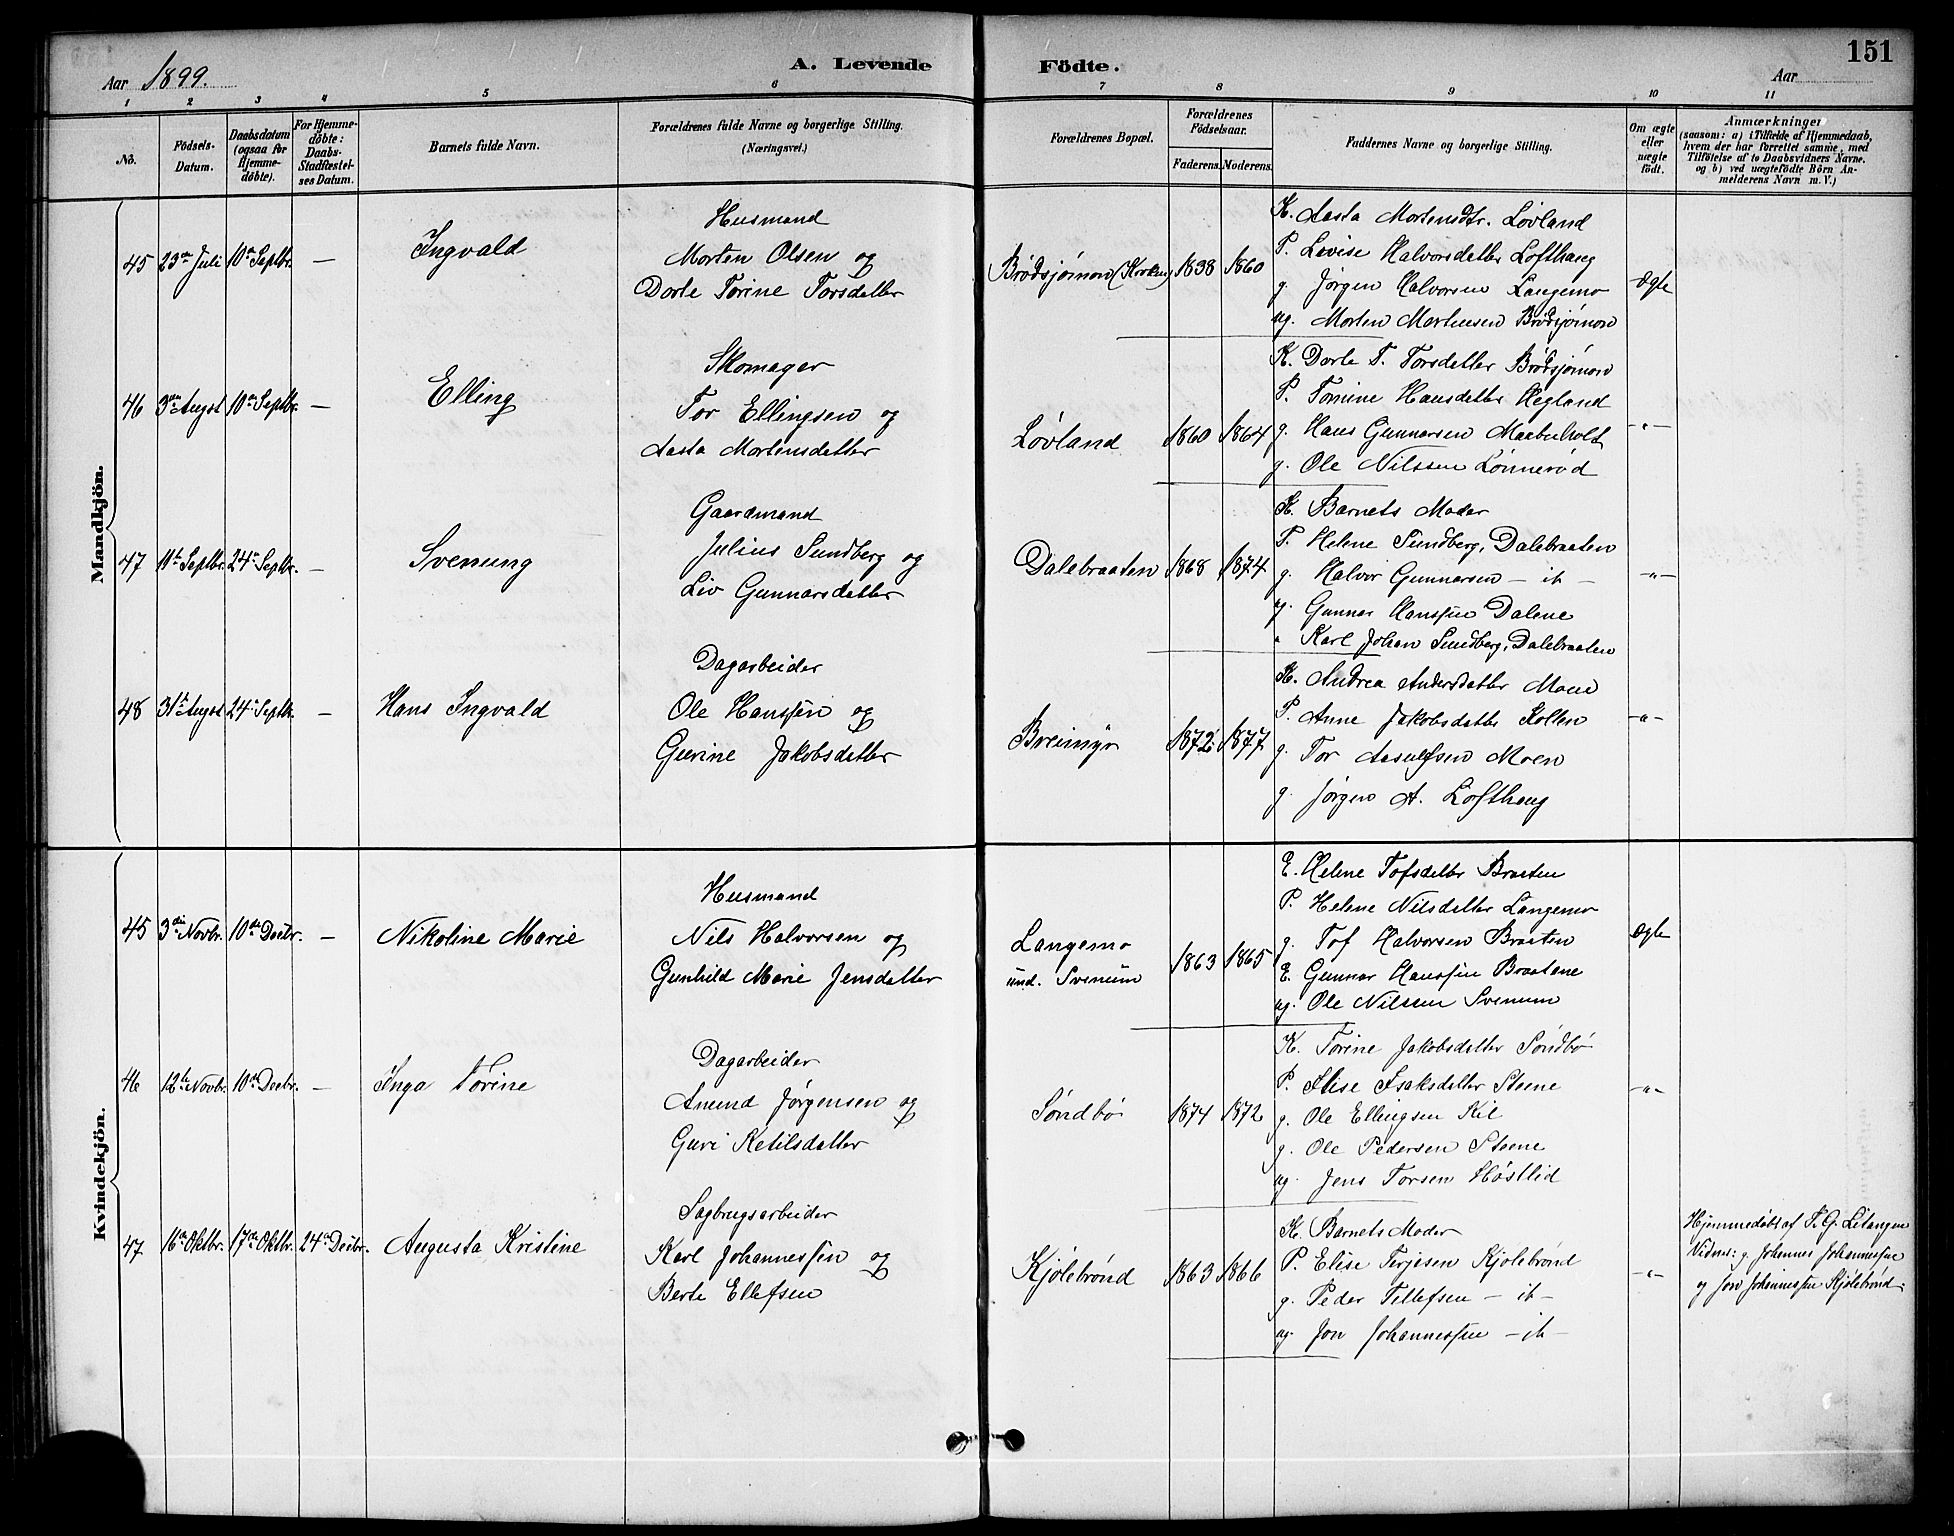 Aar 1899.
A. Levende Fødte.
151
Aar
1 2 3 4 5 6 7 8 9 10 11
No.
Födsels-Datum.
Daabsdatum (ogsaa for Hjemme-döbte).
For Hjemme-döbte: Daabs-Stadfæstel-ses Datum.
Barnets fulde Navn.
Forældrenes fulde Navne og borgerlige Stilling.
(Næringsvei.)
Forældrenes Bopæl.
Forældrenes Födselsaar.
Faderens. Moderens.
Faddernes Navne og borgerlige Stilling.
Om ægte eller uægte födt.
Anmærkninger
(saasom: a) i Tilfælde af Hjemmedaab, hvem der har forrettet samme, med Tilföielse af to Daabsvidners Navne. og b) ved uægtefödte Börn An-melderens Navn m. V.)
Mandkjön.
45 23de Juli 10de Septbr. — Ingvald
Husmand
Morten Olsen og
Dorte Torine Torsdatter
Brödsjömon (Kroken) 1838 1860
K. Aasta Mortensdtr. Lövland
P. Lovise Halvorsdatter Lofthaug
g. Jörgen Halvorsen Langemo
ug. Morten Mortensen Brödsjömon
Ægte
46 3die Augst 10de Septbr. — Elling
Skomager
Tor Ellingsen og
Aasta Mortensdatter
Lövland 1860 1864
K. Dorte T. Torsdatter Brödsjömon
P. Tomine Hansdatter Hegland
g. Hans Gunnarsen Maaberholt
g. Ole Nilssen Lönneröd
—"—
47 10de Septbr. 24de Septbr. — Svenung
Gaardmand
Julius Sundberg og
Liv Gunnarsdatter
Dalebraaten 1868 1874
K. Barnets Moder
P. Helene Sundberg, Dalebraaten
g. Halvor Gunnarsen — it —
ug. Gunnar Hanssen Dalene
" Karl Johan Sundberg, Dalebraaten
—"—
48 31te Augst 24de Septbr. — Hans Ingvald
Dagarbeider
Ole Hanssen og
Gurine Jakobsdatter
Breimyr 1872 1877
K. Andrea Andersdatter Moen
P. Anne Jakobsdatter Kollen
g. Tor Aasulfsen Moen
g. Jörgen A. Lofthaug
—"—
Kvindekjön.
45 3die Novbr. 10de Decbr. — Nikoline Marie
Husmand
Nils Halvorsen og
Gunhild Marie Jensdatter
Langemo
und. Svenum
1863 1865
E. Helene Tofsdatter Braaten
P. Helene Nilsdatter Langemo
g. Tof Halvorsen Braaten
E. Gunnar Hanssen Braatene
ug. Ole Nilssen Svenum
Ægte
46 12te Novbr. 10de Decbr. — Inga Torine
Dagarbeider
Anund Jörgensen og
Guri Ketilsdatter
Söndbö 1874 1872
K. Torine Jakobsdatter Söndbö
P. Elise Isaksdatter Steene
g. Ole Ellingsen Kil
g. Ole Pedersen Steene
ug. Jens Torsen Höstlid
—"—
47 16de Oktbr. 17de Oktbr. 24de Decbr. Augusta Kristine
Sagbrugsarbeider
Karl Johannessen og
Berte Ellefsen
Kjölebrönd 1863 1866
K. Barnets Moder
P. Elise Terjesen Kjölebrönd
g. Peder Tellefsen — it —
ug. Jon Johannessen — it —
—"—
Hjemmedöbt af T. G. Litangen
Vidner: g. Johannes Johannessen
og Jon Johannessen Kjölebrönd.